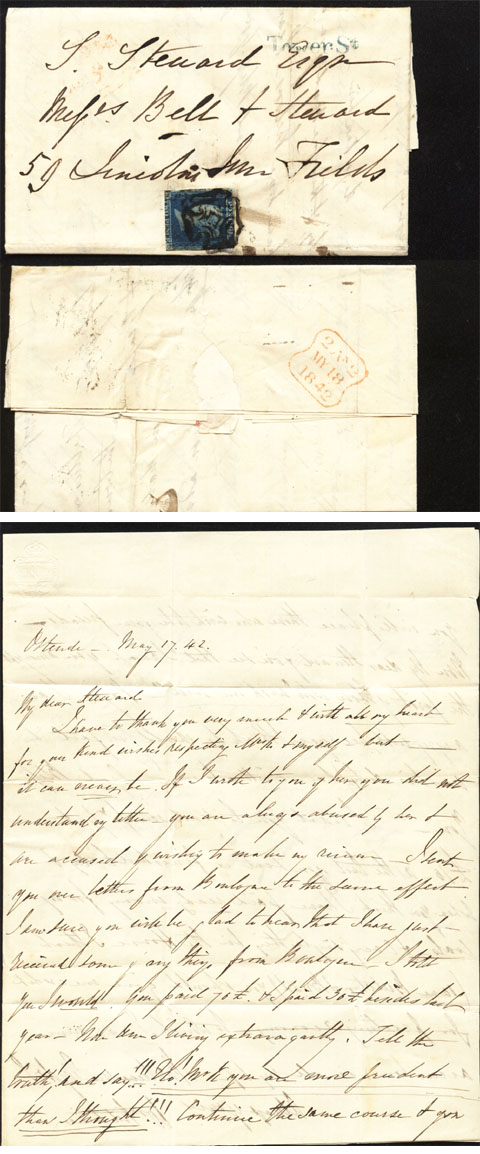 Tower St
S. Steward Esqr
Messrs Bell & Steward
59 Lincolns Inn Fields
2 AN 2
MY 18
1842
Ostende - May 17. 42.
My dear Steward
I have to thank you very much & with all my heart
for your kind wishes respecting Mrs & myself but
it can never be. If I wrote to you of her you did not
understand my letter you are always abused by her &
are accused of wishing to make my I sent
you over letters from Boulogne to the same effect
I am sure you will be glad to hear that I have just
received some of my things from Boulogne - I told
you I would. You paid 70£. & I paid 30£ besides last
year - Now am I living extravagantly. Tell the
truth! and say!!! Ho! you are more prudent
than I thought!!!! Continue the same course & you